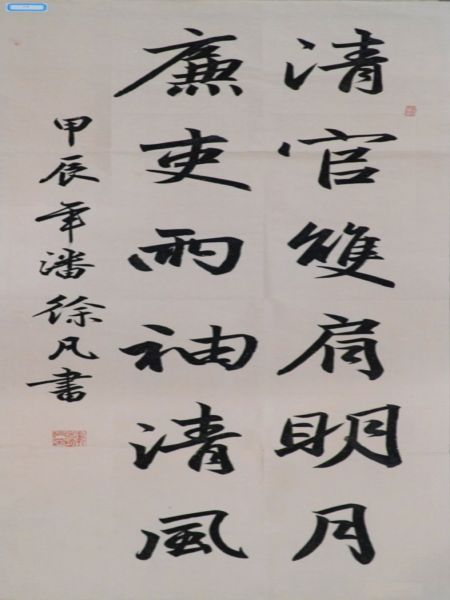 清官雙肩明月
廉吏兩袖清風
甲辰年潘徐凡書